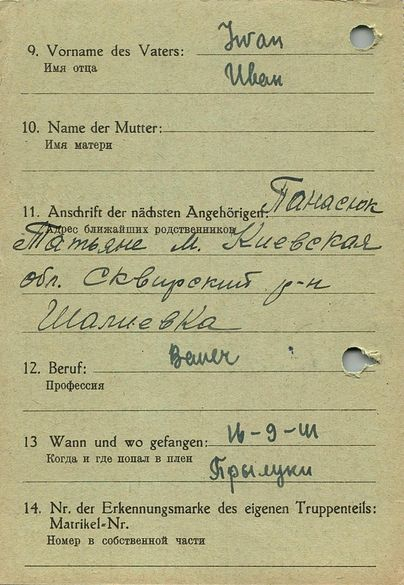 9. Vorname des Vaters: Jwan
Имя отца Иван
10. Name der Mutter:
Имя матери
11. Anschrift der nächsten Angehörigen: Панасюк
Адрес ближайших родственников
Татьяне М. Киевская
обл. Сквирский р-н
Шалиевка
12. Beruf:
Профессия
13 Wann und wo gefangen: 16-9-41
Когда и где попал в плен Прылуки
14. Nr. der Erkennungsmarke des eigenen Truppenteils:
Matrikel-Nr.
Номер в собственной части